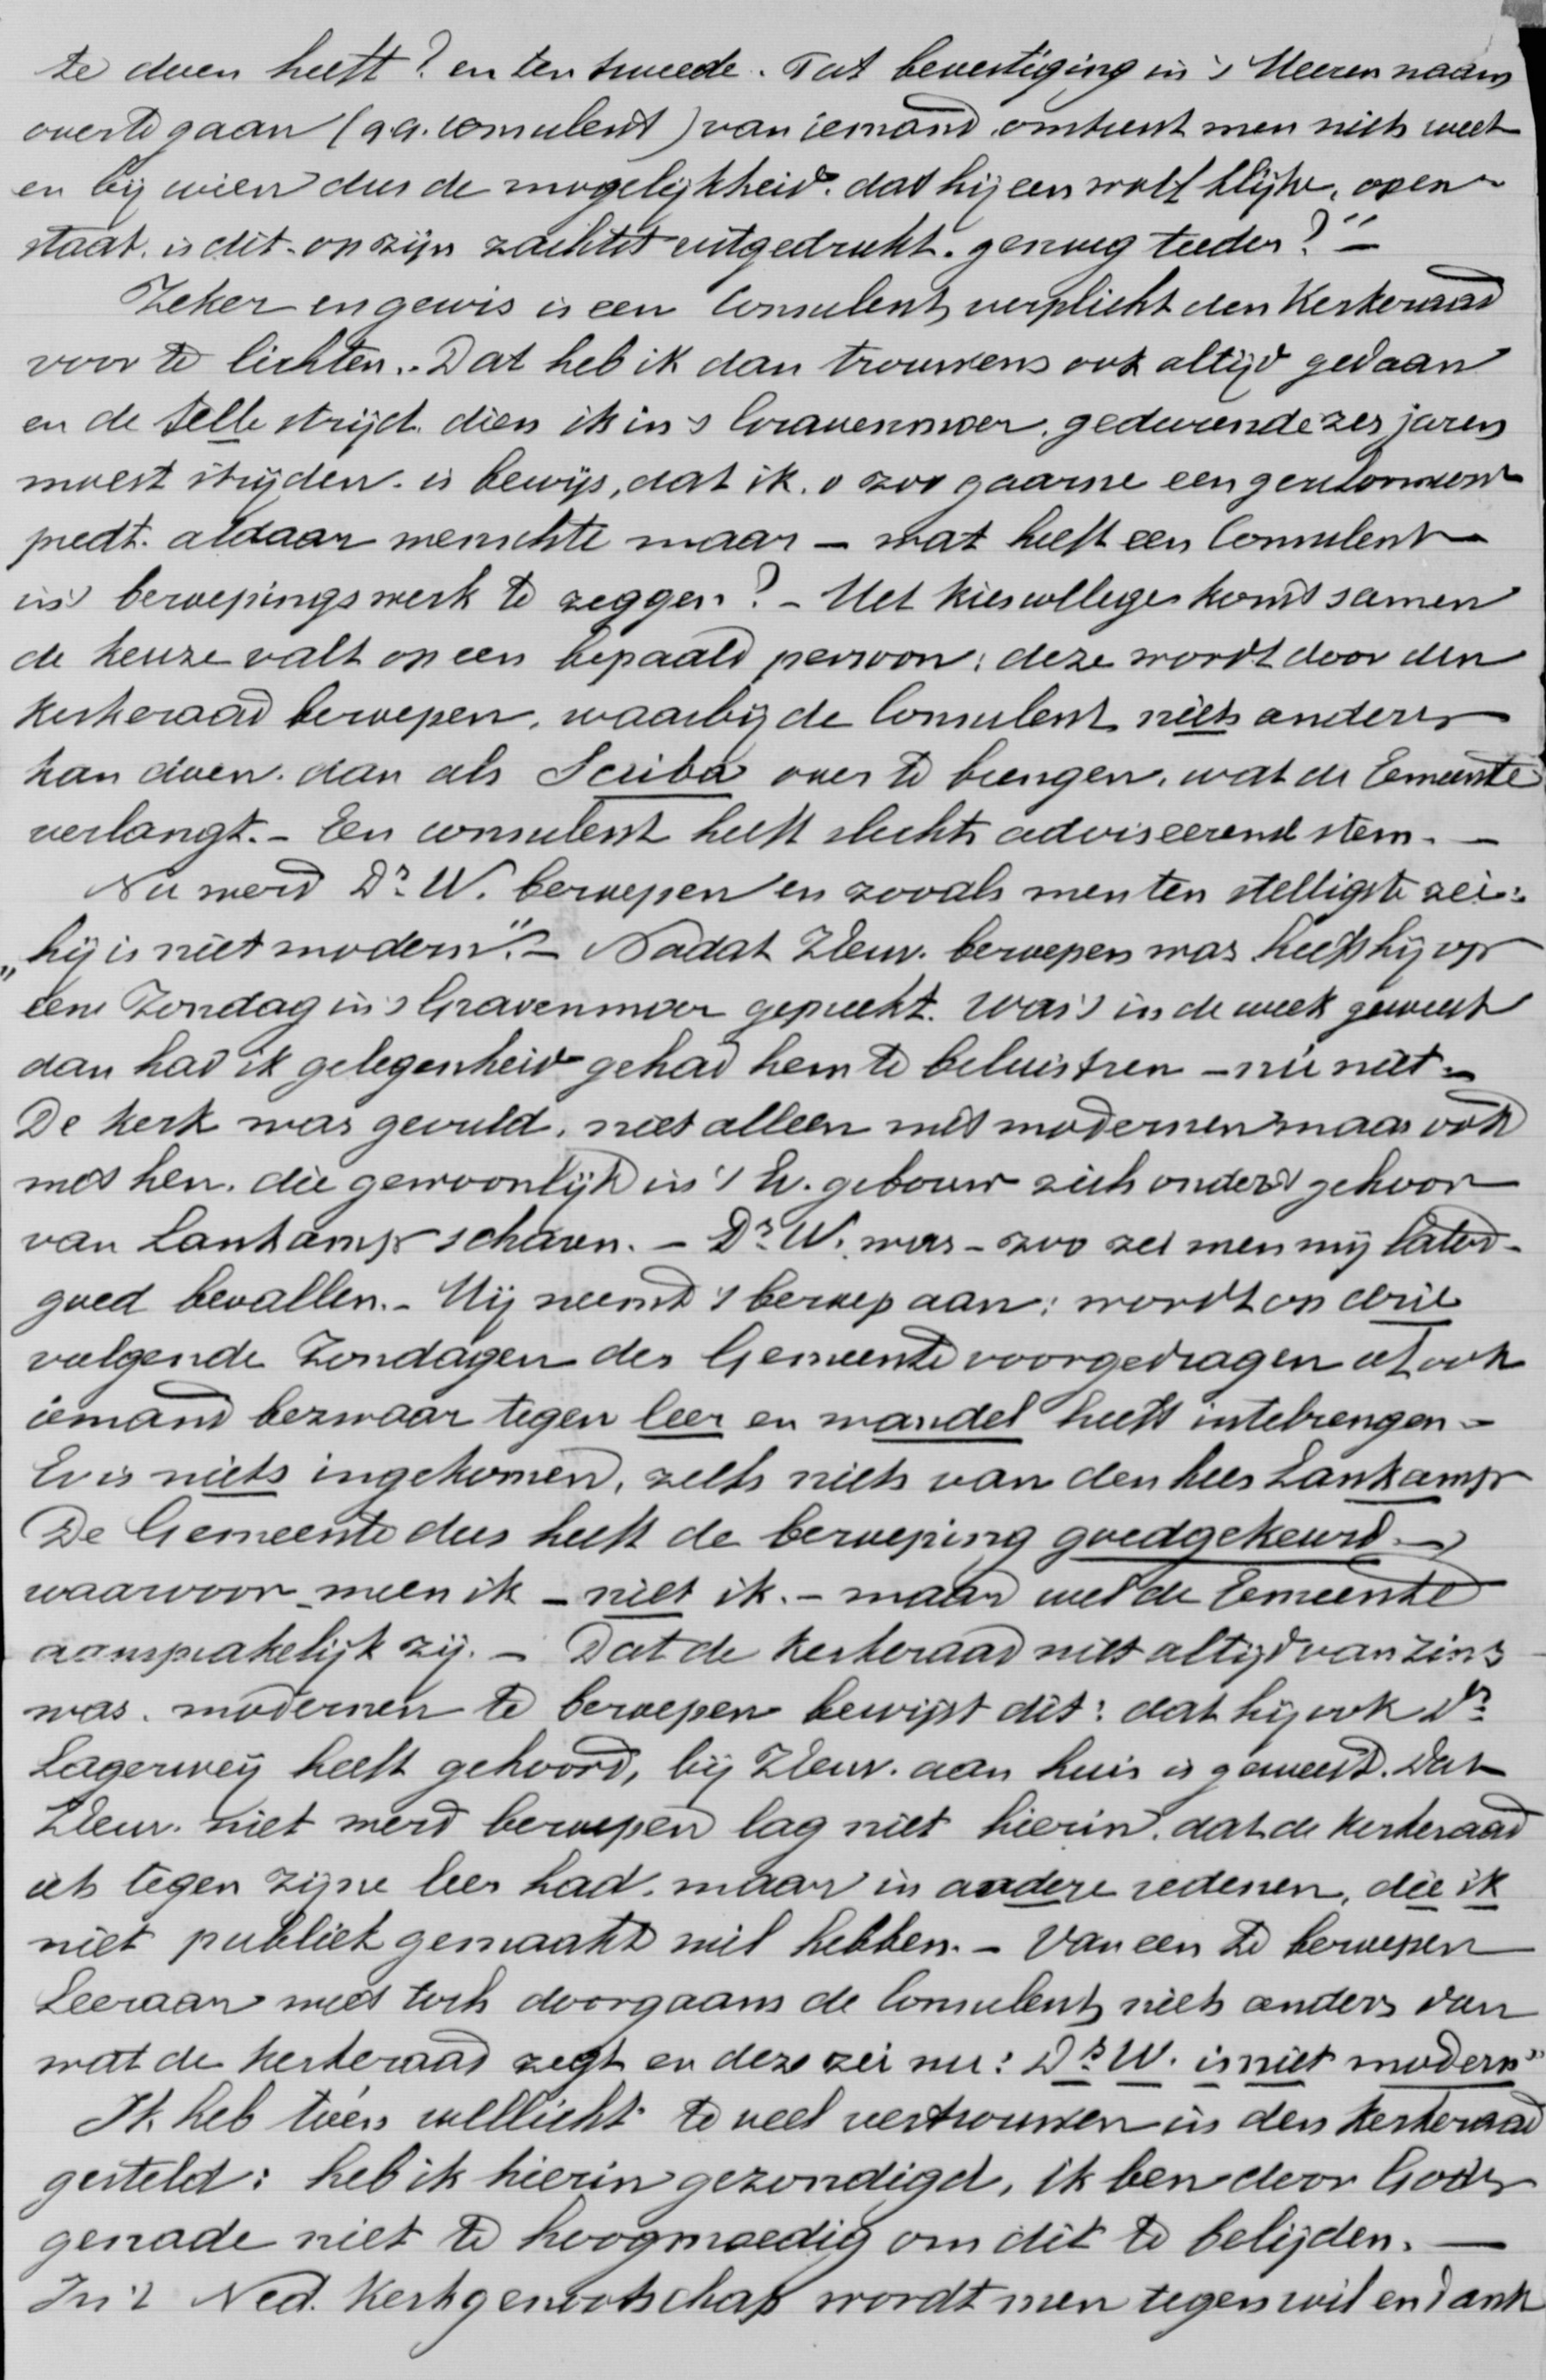 te doen heeft? en ten tweede. Tot bevestiging in 's Heeren naam
over te gaan (q.q. consulent) van iemand, omtrent men niets weet
en bij wien dus de mogelijkheid, dat hij een wolf blijke, open
staat, is dit, op zijn zachtst uitgedrukt, genoeg teeder?" —
Zeker en gewis is een Consulent verplicht den Kerkeraad
voor te lichten. Dat heb ik dan trouwens ook altijd gedaan
en de felle strijd, dien ik in 's Gravenmoer, gedurende zes jaren
moest strijden, is bewijs, dat ik, o zoo gaarne een
predt. aldaar wenschte maar — wat heeft een Consulent
in 't beroepingswerk te zeggen? — Het kiescollege komt samen
de keuze valt op een bepaald persoon; deze wordt door den
Kerkeraad beroepen, waarbij de Consulent niets anders
kan doen, dan als Scriba over te brengen, wat de Gemeente
verlangt. — Een consulent heeft slechts adviseerend stem. —
Nu werd Ds. W. beroepen en zooals men ten stelligste zei:
„hij is niet modern". — Nadat ZEerw. beroepen was heeft hij op
een Zondag in 's Gravenmoer gepreekt. Was 't in de week geweest
dan had ik gelegenheid gehad hem te beluistren — nu niet. —
De kerk was gevuld, niet alleen met modernen maar ook
met hen, die gewoonlijk in 't Ev. gebouw zich onder 't gehoor
van Lankamp scharen. — Ds. W. was — zoo zei men mij later —
goed bevallen. — Hij neemt 't beroep aan; wordt op drie
volgende Zondagen der Gemeente voorgedragen of ook
iemand bezwaar tegen leer en wandel heeft intebrengen —
Er is niets ingekomen, zelfs niets van den heer Lankamp
De Gemeente dus heeft de beroeping goedgekeurd —
waarvoor meen ik — niet ik. — maar wel de Gemeente
aansprakelijk zij. — Dat de Kerkeraad niet altijd van zins
was, modernen te beroepen bewijst dit: dat hij ook Ds.
Lagerweij heeft gehoord, bij ZEerw. aan huis is geweest. Dat
ZEerw. niet werd beroepen lag niet hierin, dat de Kerkeraad
iets tegen zijne leer had, maar in andere redenen, die ik
niet publiek gemaakt wil hebben. — Van een te beroepen
Leeraar weet toch doorgaans de Consulent niets anders dan
wat de Kerkeraad zegt en deze zei nu: Ds. W. is niet modern"
Ik heb toen wellicht te veel vertrouwen in den Kerkeraad
gesteld: heb ik hierin gezondigd, ik ben door Gods
genade niet te hoogmoedig om dit te belijden. —
In 't Ned. Kerkgenootschap wordt men tegen wil en dank